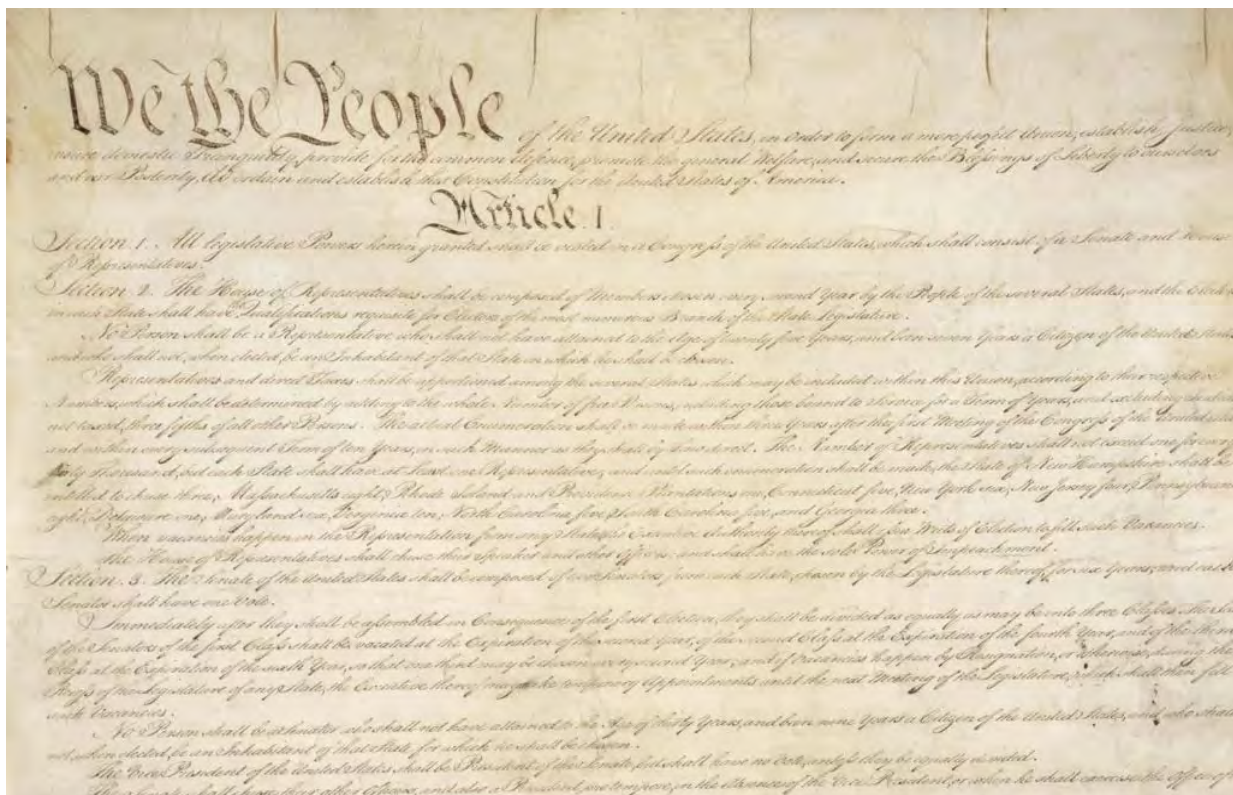 We the People of the United States, in Order to form a more perfect Union, establish Justice,
insure domestic Tranquility, provide for the common defence, promote the general Welfare, and secure the Blessings of Liberty to ourselves
and our Posterity, do ordain and establish this Constitution for the United States of America.
Article. I.
Section. 1. All legislative Powers herein granted shall be vested in a Congress of the United States, which shall consist of a Senate and House
of Representatives.
Section. 2. The House of Representatives shall be composed of Members chosen every second Year by the People of the several States, and the Electors
in each State shall have Qualifications requisite for Electors of the most numerous Branch of the State Legislature.
No Person shall be a Representative who shall not have attained to the Age of twenty five Years, and been seven Years a Citizen of the United States,
and who shall not, when elected, be an Inhabitant of that State in which he shall be chosen.
Representatives and direct Taxes shall be apportioned among the several States which may be included within this Union, according to their respective
Numbers, which shall be determined by adding to the whole Number of free Persons, including those bound to Service for a Term of Years, and excluding Indians
not taxed, three fifths of all other Persons. The actual Enumeration shall be made within three Years after the first Meeting of the Congress of the United States,
and within every subsequent Term of ten Years, in such Manner as they shall by Law direct. The Number of Representatives shall not exceed one for every
thirty Thousand, but each State shall have at Least one Representative; and until such enumeration shall be made, the State of New Hampshire shall be
entitled to chuse three, Massachusetts eight, Rhode Island and Providence Plantations one, Connecticut five, New York six, New Jersey four, Pennsylvania
eight, Delaware one, Maryland six, Virginia ten, North Carolina five, South Carolina five, and Georgia three.
When vacancies happen in the Representation from any State, the Executive Authority thereof shall issue Writs of Election to fill such Vacancies.
The House of Representatives shall chuse their Speaker and other Officers; and shall have the sole Power of Impeachment.
Section. 3. The Senate of the United States shall be composed of two Senators from each State, chosen by the Legislature thereof, for six Years; and each
Senator shall have one Vote.
Immediately after they shall be assembled in Consequence of the first Election, they shall be divided as equally as may be into three Classes. The Seats
of the Senators of the first Class shall be vacated at the Expiration of the second Year, of the second Class at the Expiration of the fourth Year, and of the third
Class at the Expiration of the sixth Year, so that one third may be chosen every second Year; and if Vacancies happen by Resignation, or otherwise, during the
Recess of the Legislature of any State, the Executive thereof may make temporary Appointments until the next Meeting of the Legislature, which shall then fill
such Vacancies.
No Person shall be a Senator who shall not have attained to the Age of thirty Years, and been nine Years a Citizen of the United States, and who shall
not, when elected, be an Inhabitant of that State for which he shall be chosen.
The Vice President of the United States shall be President of the Senate, but shall have no Vote, unless they be equally divided.
The Senate shall chuse their other Officers, and also a President pro tempore, in the Absence of the Vice President, or when he shall exercise the Office of